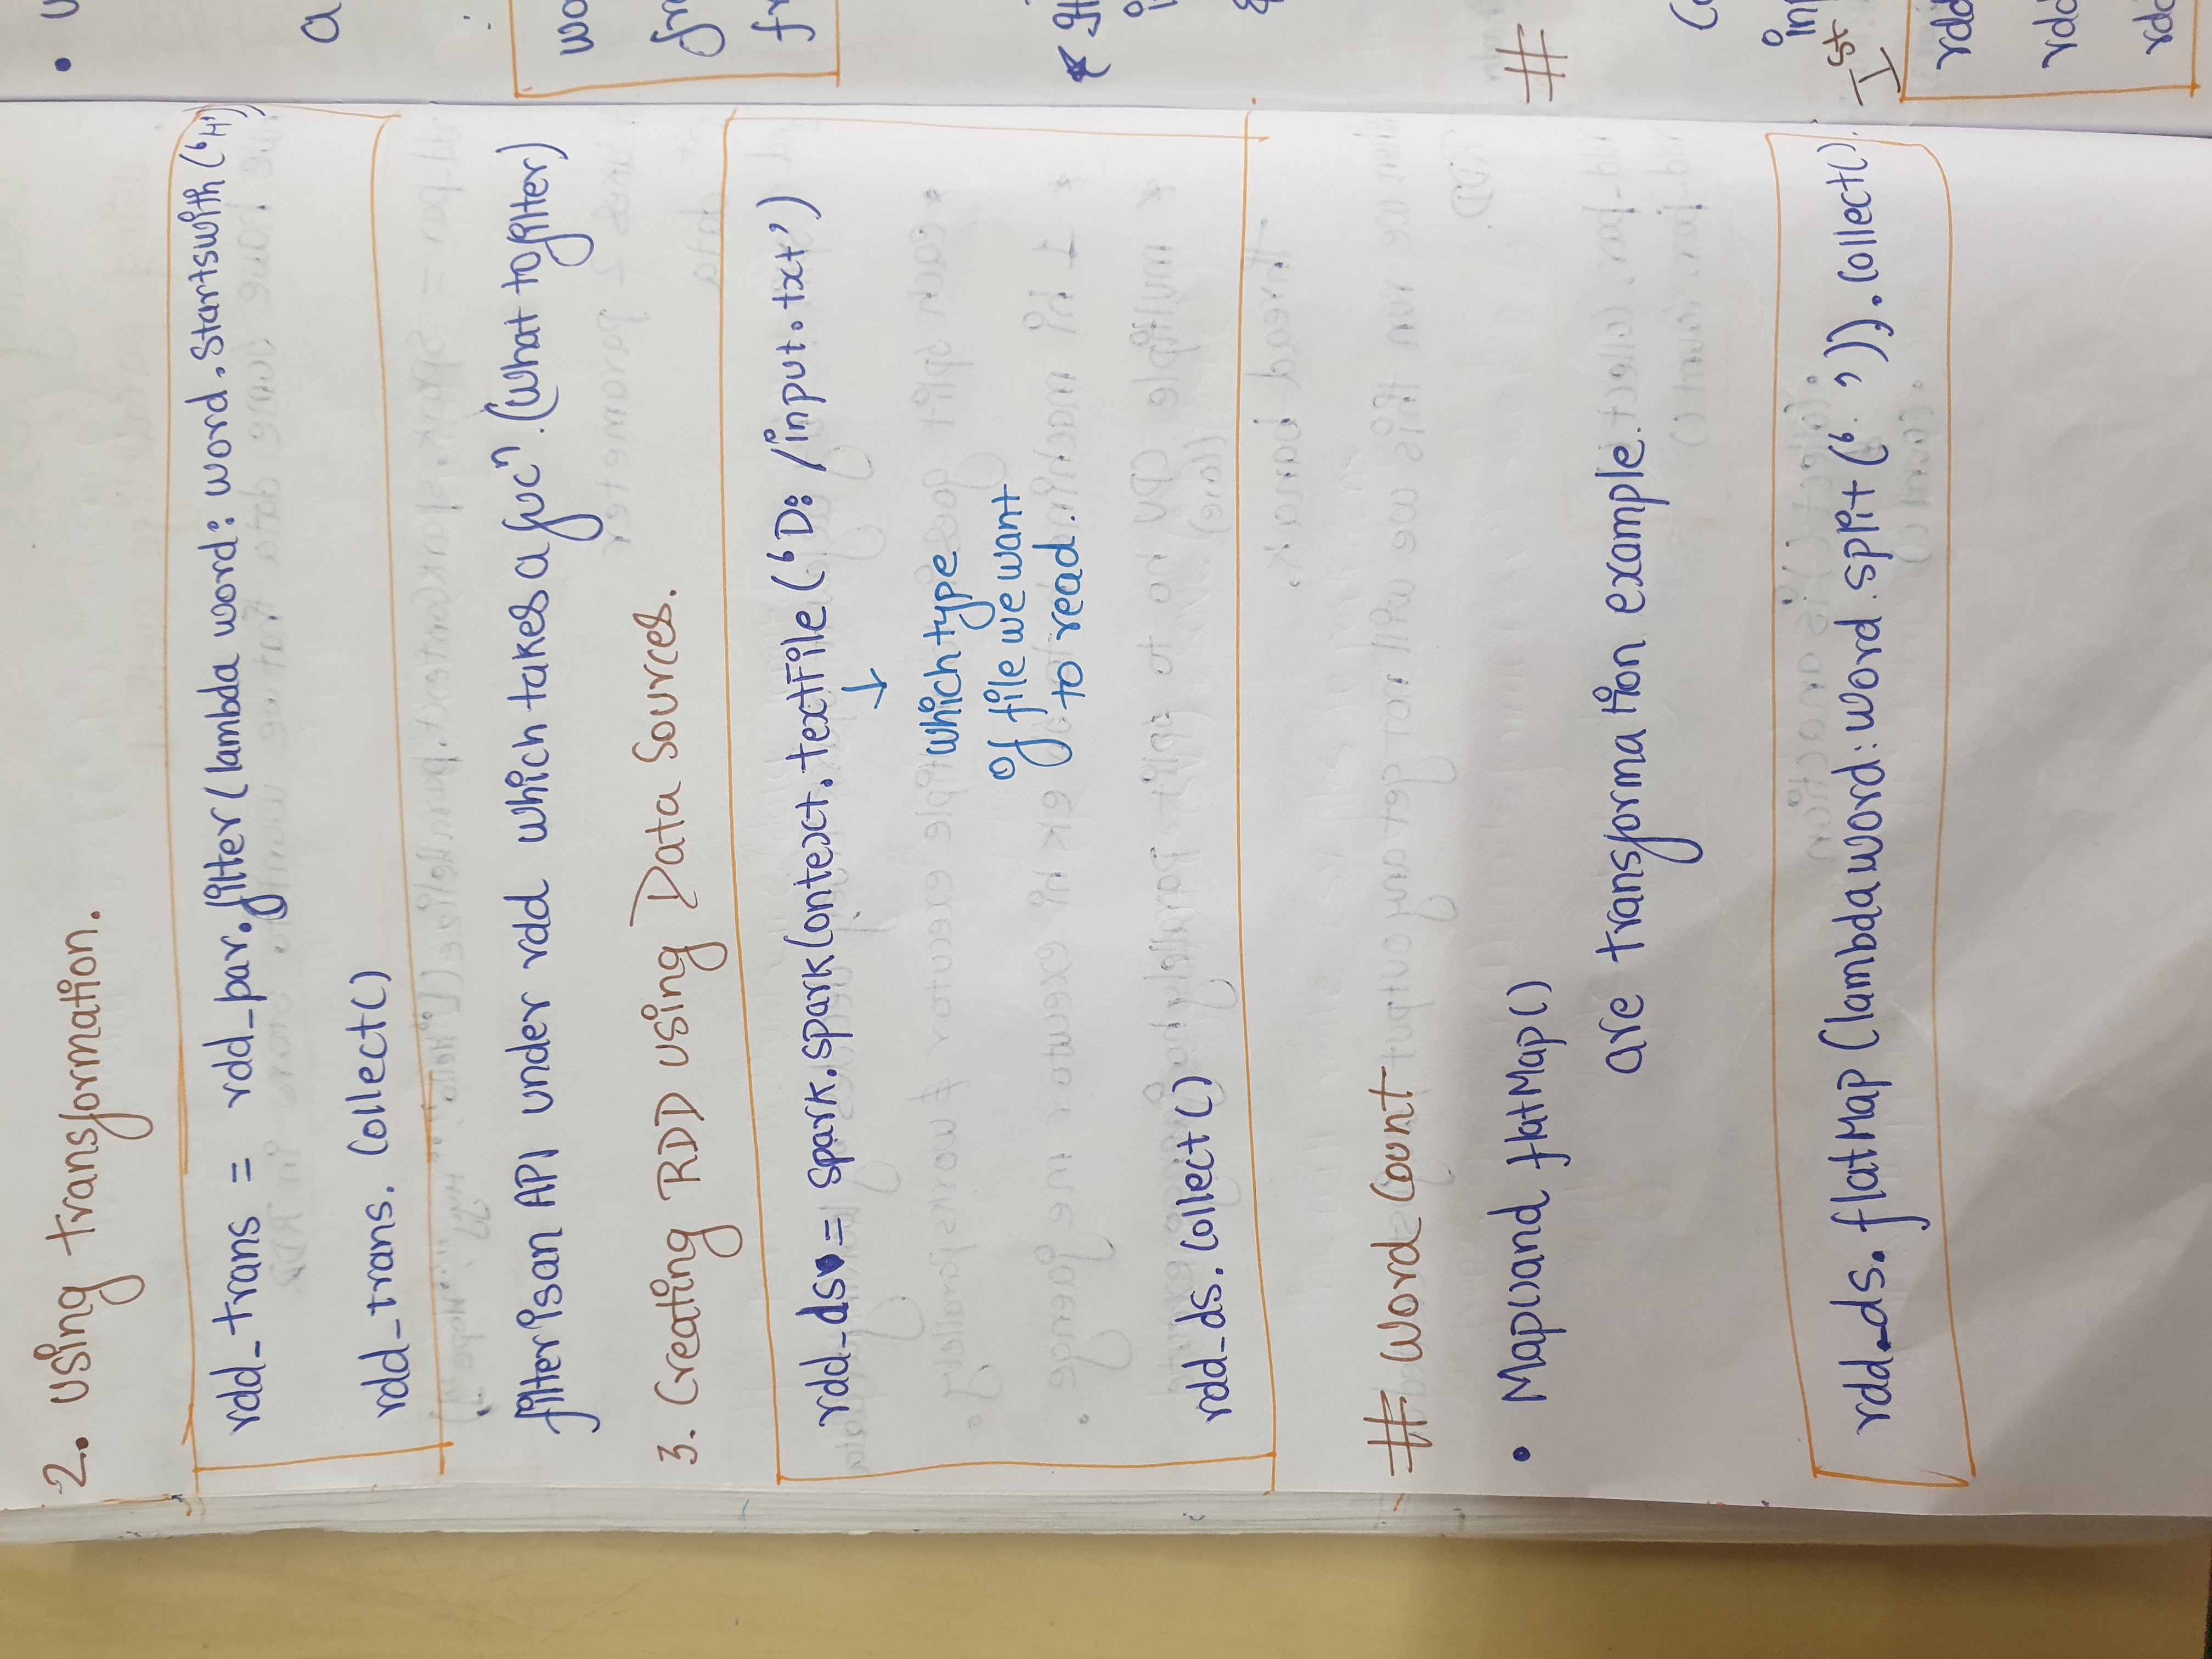 2. Using transformation.
rdd_trans = rdd_par.filter(lambda word: word.startswith('H')
rdd_trans. Collect()
filter is an API under rdd which takes a fucⁿ. (What to filter)
3. Creating RDD using Data Sources.
rdd_ds = spark.sparkContext.textFile ('D: /input.txt')
↓
which type
of file we want
to read.
rdd_ds. Collect ()
# Word Count
• Map() and flatMap()
are transformation example.
rdd_ds. flatMap (lambda word: word.split (' ')). Collect().
a
wo
fr
fr
#
Co
inp
Ist
rdd
rdd
rdd